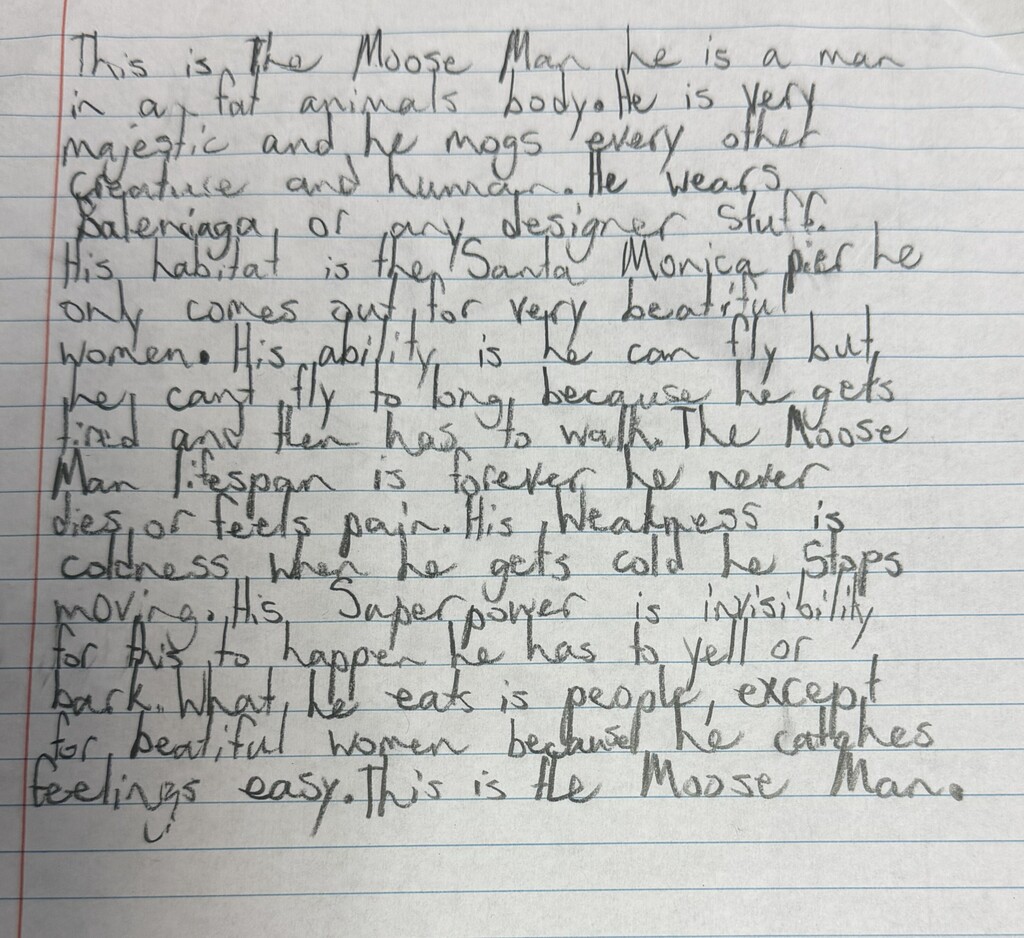 This is the Moose Man he is a man
in a fat animals body. He is very
majestic and he mogs every other
creature and human. He wears
Balenciaga, or any designer stuff.
His habitat is the Santa Monica pier he
only comes out for very beatiful
women. His ability is he can fly but
he cant fly to long, because he gets
tired and then has to walk. The Moose
Man lifespan is forever he never
dies or feels pain. His Weakness is
coldness when he gets cold he stops
moving. His Superpower is invisibility
for this to happen he has to yell or
bark. What he eats is people, except
for beatiful women because he catches
feelings easy. This is the Moose Man.